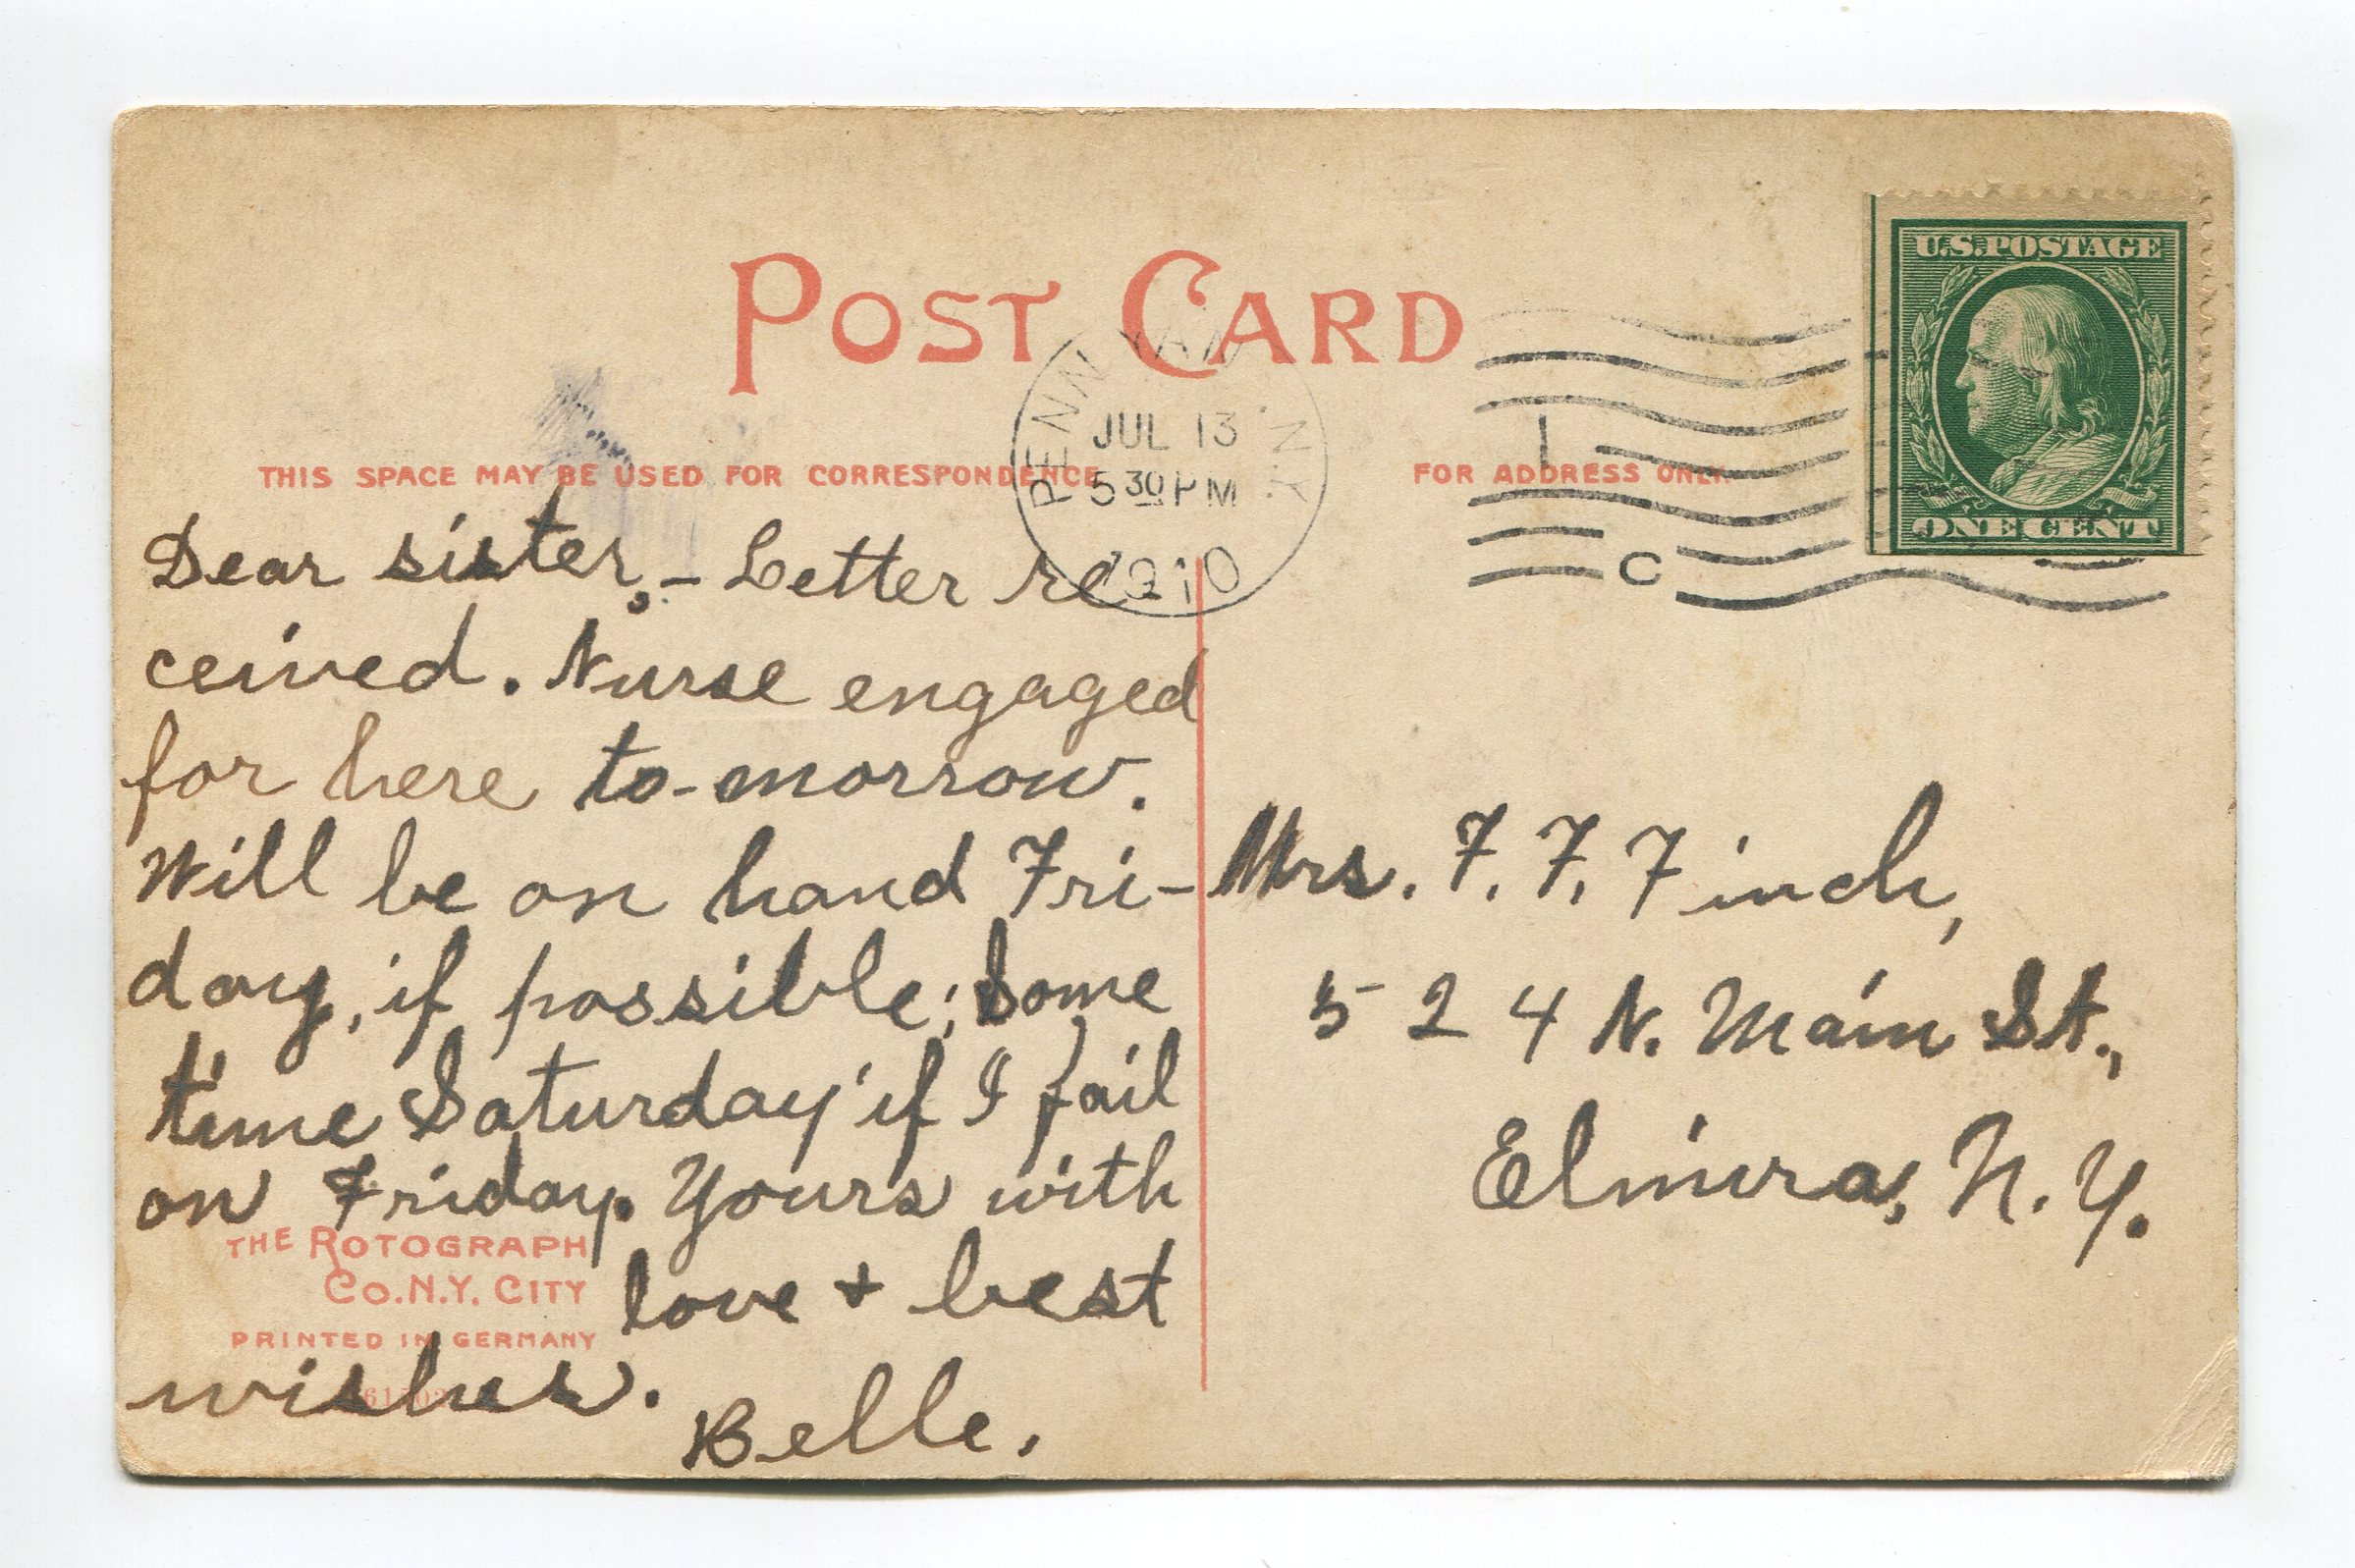 POST CARD
PENN YAN N.Y.
JUL 13
5 30 PM
1910
U.S. POSTAGE
ONE CENT
C
THIS SPACE MAY BE USED FOR CORRESPONDENCE
FOR ADDRESS ONLY
Dear sister,- Letter re
ceived. Nurse engaged
for here to-morrow.
Will be on hand Fri-
day, if possible; some
time Saturday if I fail
on Friday. Yours with
love + best
wishes.
Belle.
THE ROTOGRAPH
CO. N.Y. CITY
PRINTED IN GERMANY
Mrs. F. F. Finch,
524 N. Main St.,
Elmira, N. Y.